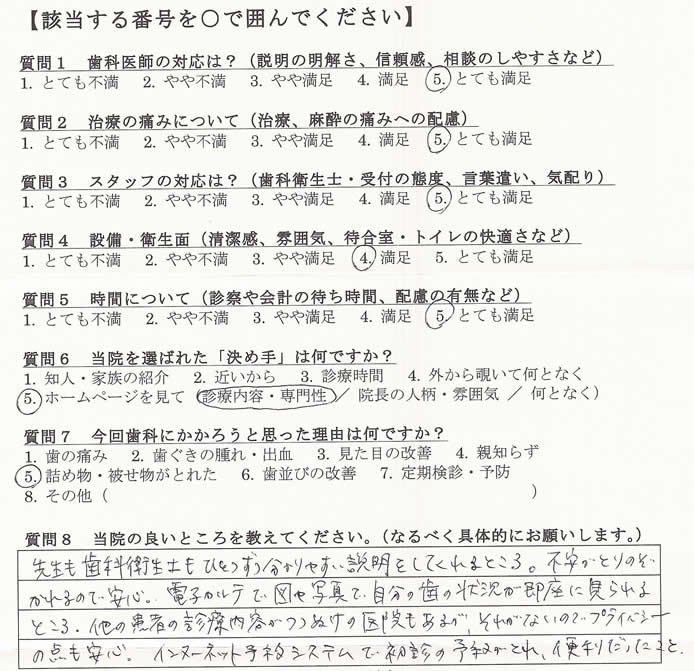 【該当する番号を○で囲んでください】
質問1 歯科医師の対応は？（説明の明解さ、信頼感、相談のしやすさなど）
1. とても不満 2. やや不満 3. やや満足 4. 満足 5. とても満足
質問2 治療の痛みについて（治療、麻酔の痛みへの配慮）
1. とても不満 2. やや不満 3. やや満足 4. 満足 5. とても満足
質問3 スタッフの対応は？（歯科衛生士・受付の態度、言葉遣い、気配り）
1. とても不満 2. やや不満 3. やや満足 4. 満足 5. とても満足
質問4 設備・衛生面（清潔感、雰囲気、待合室・トイレの快適さなど）
1. とても不満 2. やや不満 3. やや満足 4. 満足 5. とても満足
質問5 時間について（診察や会計の待ち時間、配慮の有無など）
1. とても不満 2. やや不満 3. やや満足 4. 満足 5. とても満足
質問6 当院を選ばれた「決め手」は何ですか？
1. 知人・家族の紹介 2. 近いから 3. 診療時間 4. 外から覗いて何となく
5. ホームページを見て（診療内容・専門性 ／ 院長の人柄・雰囲気 ／ 何となく）
質問7 今回歯科にかかろうと思った理由は何ですか？
1. 歯の痛み 2. 歯ぐきの腫れ・出血 3. 見た目の改善 4. 親知らず
5. 詰め物・被せ物がとれた 6. 歯並びの改善 7. 定期検診・予防
8. その他（ ）
質問8 当院の良いところを教えてください。（なるべく具体的にお願いします。）
先生も歯科衛生士もひとつずつ分かりやすい説明をしてくれるところ。不安がとりのぞ
かれるので安心。電子カルテで図や写真で、自分の歯の状況が即座に見られる
ところ。他の患者の診療内容がつつぬけの医院もあるが、それがないのでプライバシー
の点も安心。インターネット予約システムで初診の予約がとれ、便利だったこと。